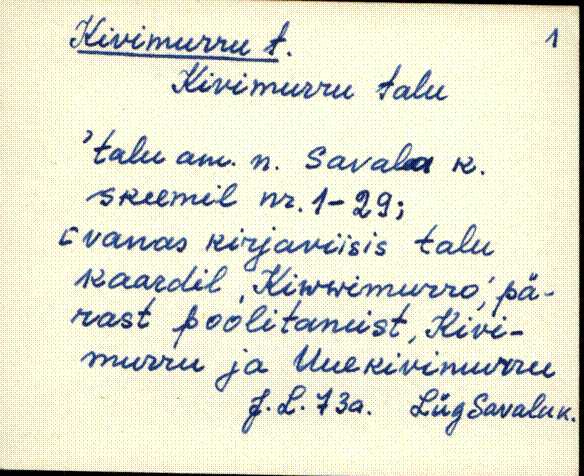 Kivimurru t. 1
Kivimurru talu
'talu am. n. Savala k.
skeemil nr. 1-29;
[vanas kirjaviisis talu
kaardil ,Kiwwimurro,' pä-
rast poolitamist, Kivi-
murru ja Uuekivimurru
J. L. 73a. LügSavaluk.